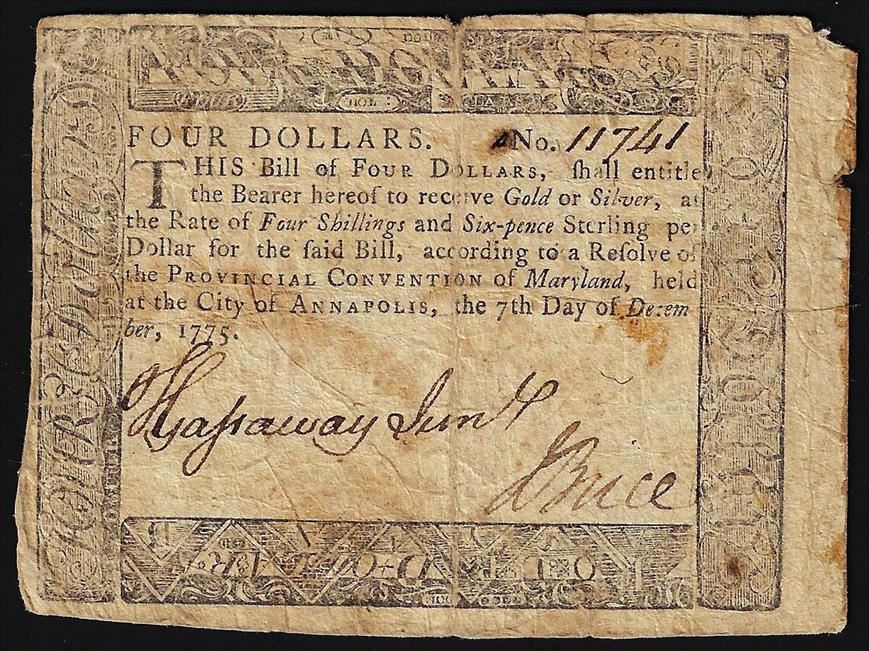 FOUR DOLLARS. No. 11741
THIS Bill of FOUR DOLLARS, ſhall entitle
the Bearer hereof to receive Gold or Silver, at
the Rate of Four Shillings and Six-pence Sterling per
Dollar for the ſaid Bill, according to a Reſolve of
the PROVINCIAL CONVENTION of Maryland, held
at the City of ANNAPOLIS, the 7th Day of Decem
ber, 1775.
Haſsaway Junr
J Brice
FOUR Dollars